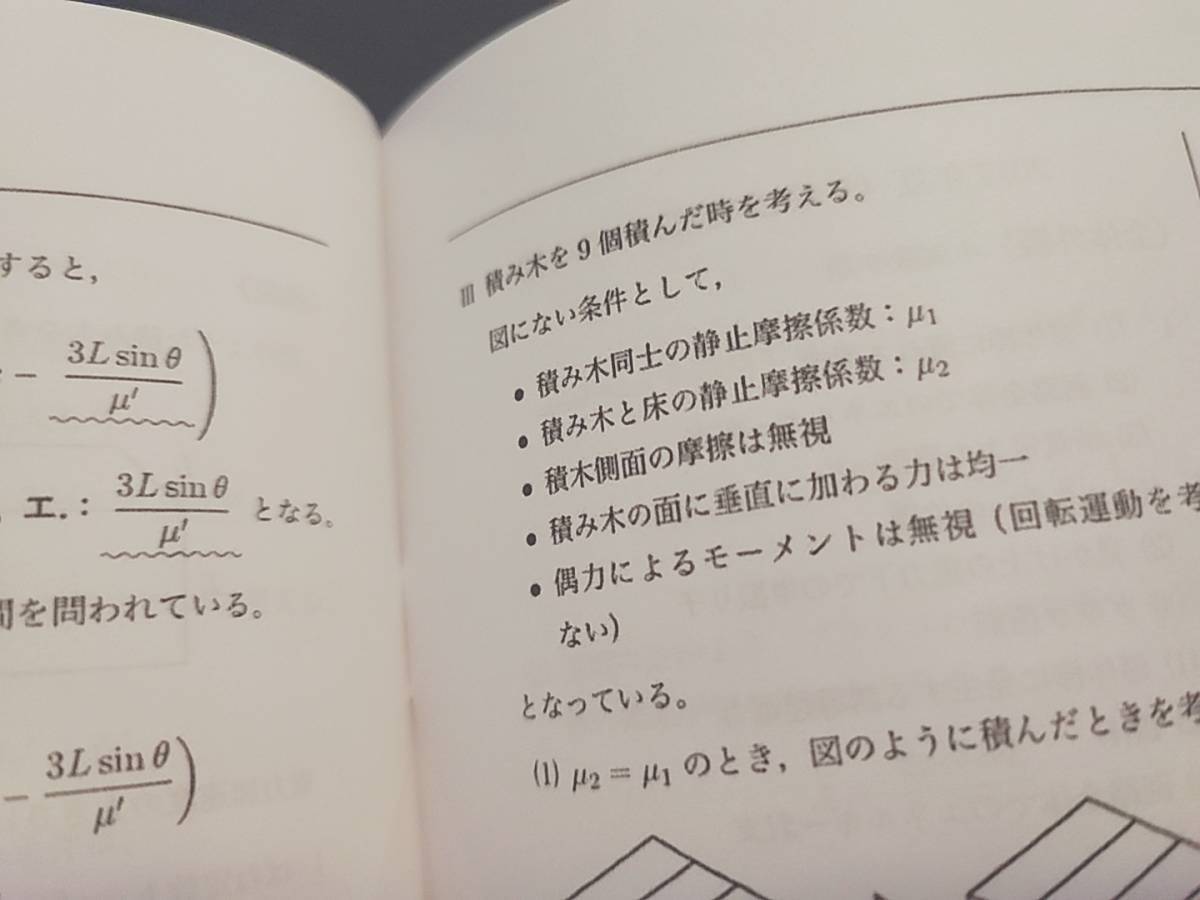 すると,
− 3L sin θ / μ′ )
エ.： 3L sin θ / μ′ となる。
間を問われている。
− 3L sin θ / μ′ )
III 積み木を 9 個積んだ時を考える。
図にない条件として,
• 積み木同士の静止摩擦係数：μ1
• 積み木と床の静止摩擦係数：μ2
• 積木側面の摩擦は無視
• 積み木の面に垂直に加わる力は均一
• 偶力によるモーメントは無視（回転運動を考
ない）
となっている。
(1) μ2 = μ1 のとき, 図のように積んだときを考